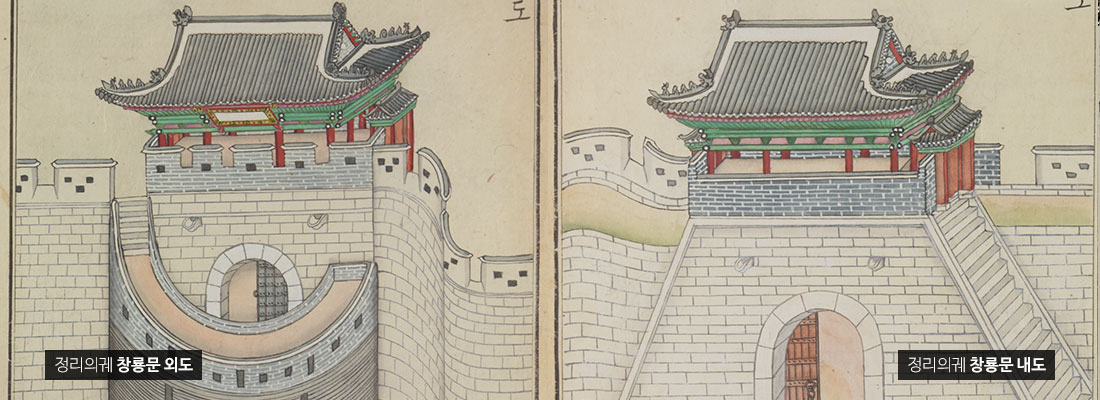 도
정리의궤 창룡문 외도
정리의궤 창룡문 내도